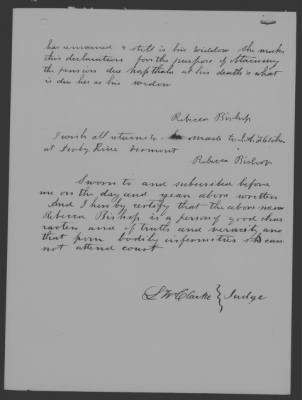 has unmarried & still is his widdow She makes
this declaration for the purpose of obtaining
the pension due Naphtali at his death & what
is due her as his widow
Rebecca Bishop
I wish all returns to made to
at Derby Line Vermont
Rebecca Bishop
Sworn to and subscribed before
me on the day and year above written
And I hereby certify that the above named
Rebecca Bishop is a person of good char
racter and of truth and veracity and
that from bodily infirmities She can
not attend court
S W Clarke } Judge